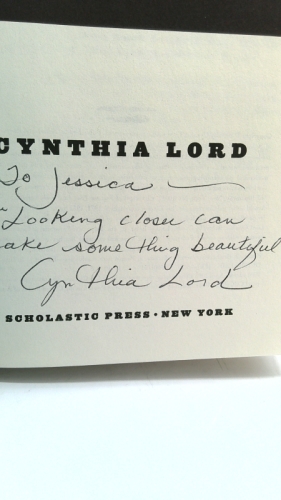 CYNTHIA LORD
To Jessica —
"Looking closer can
make something beautiful
Cynthia Lord
SCHOLASTIC PRESS • NEW YORK